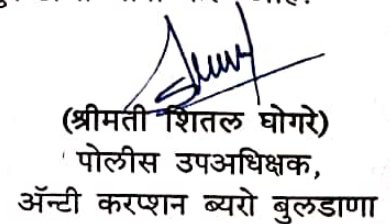 (श्रीमती शितल घोगरे)
पोलीस उपअधिक्षक,
ॲन्टी करप्शन ब्यरो बुलडाणा